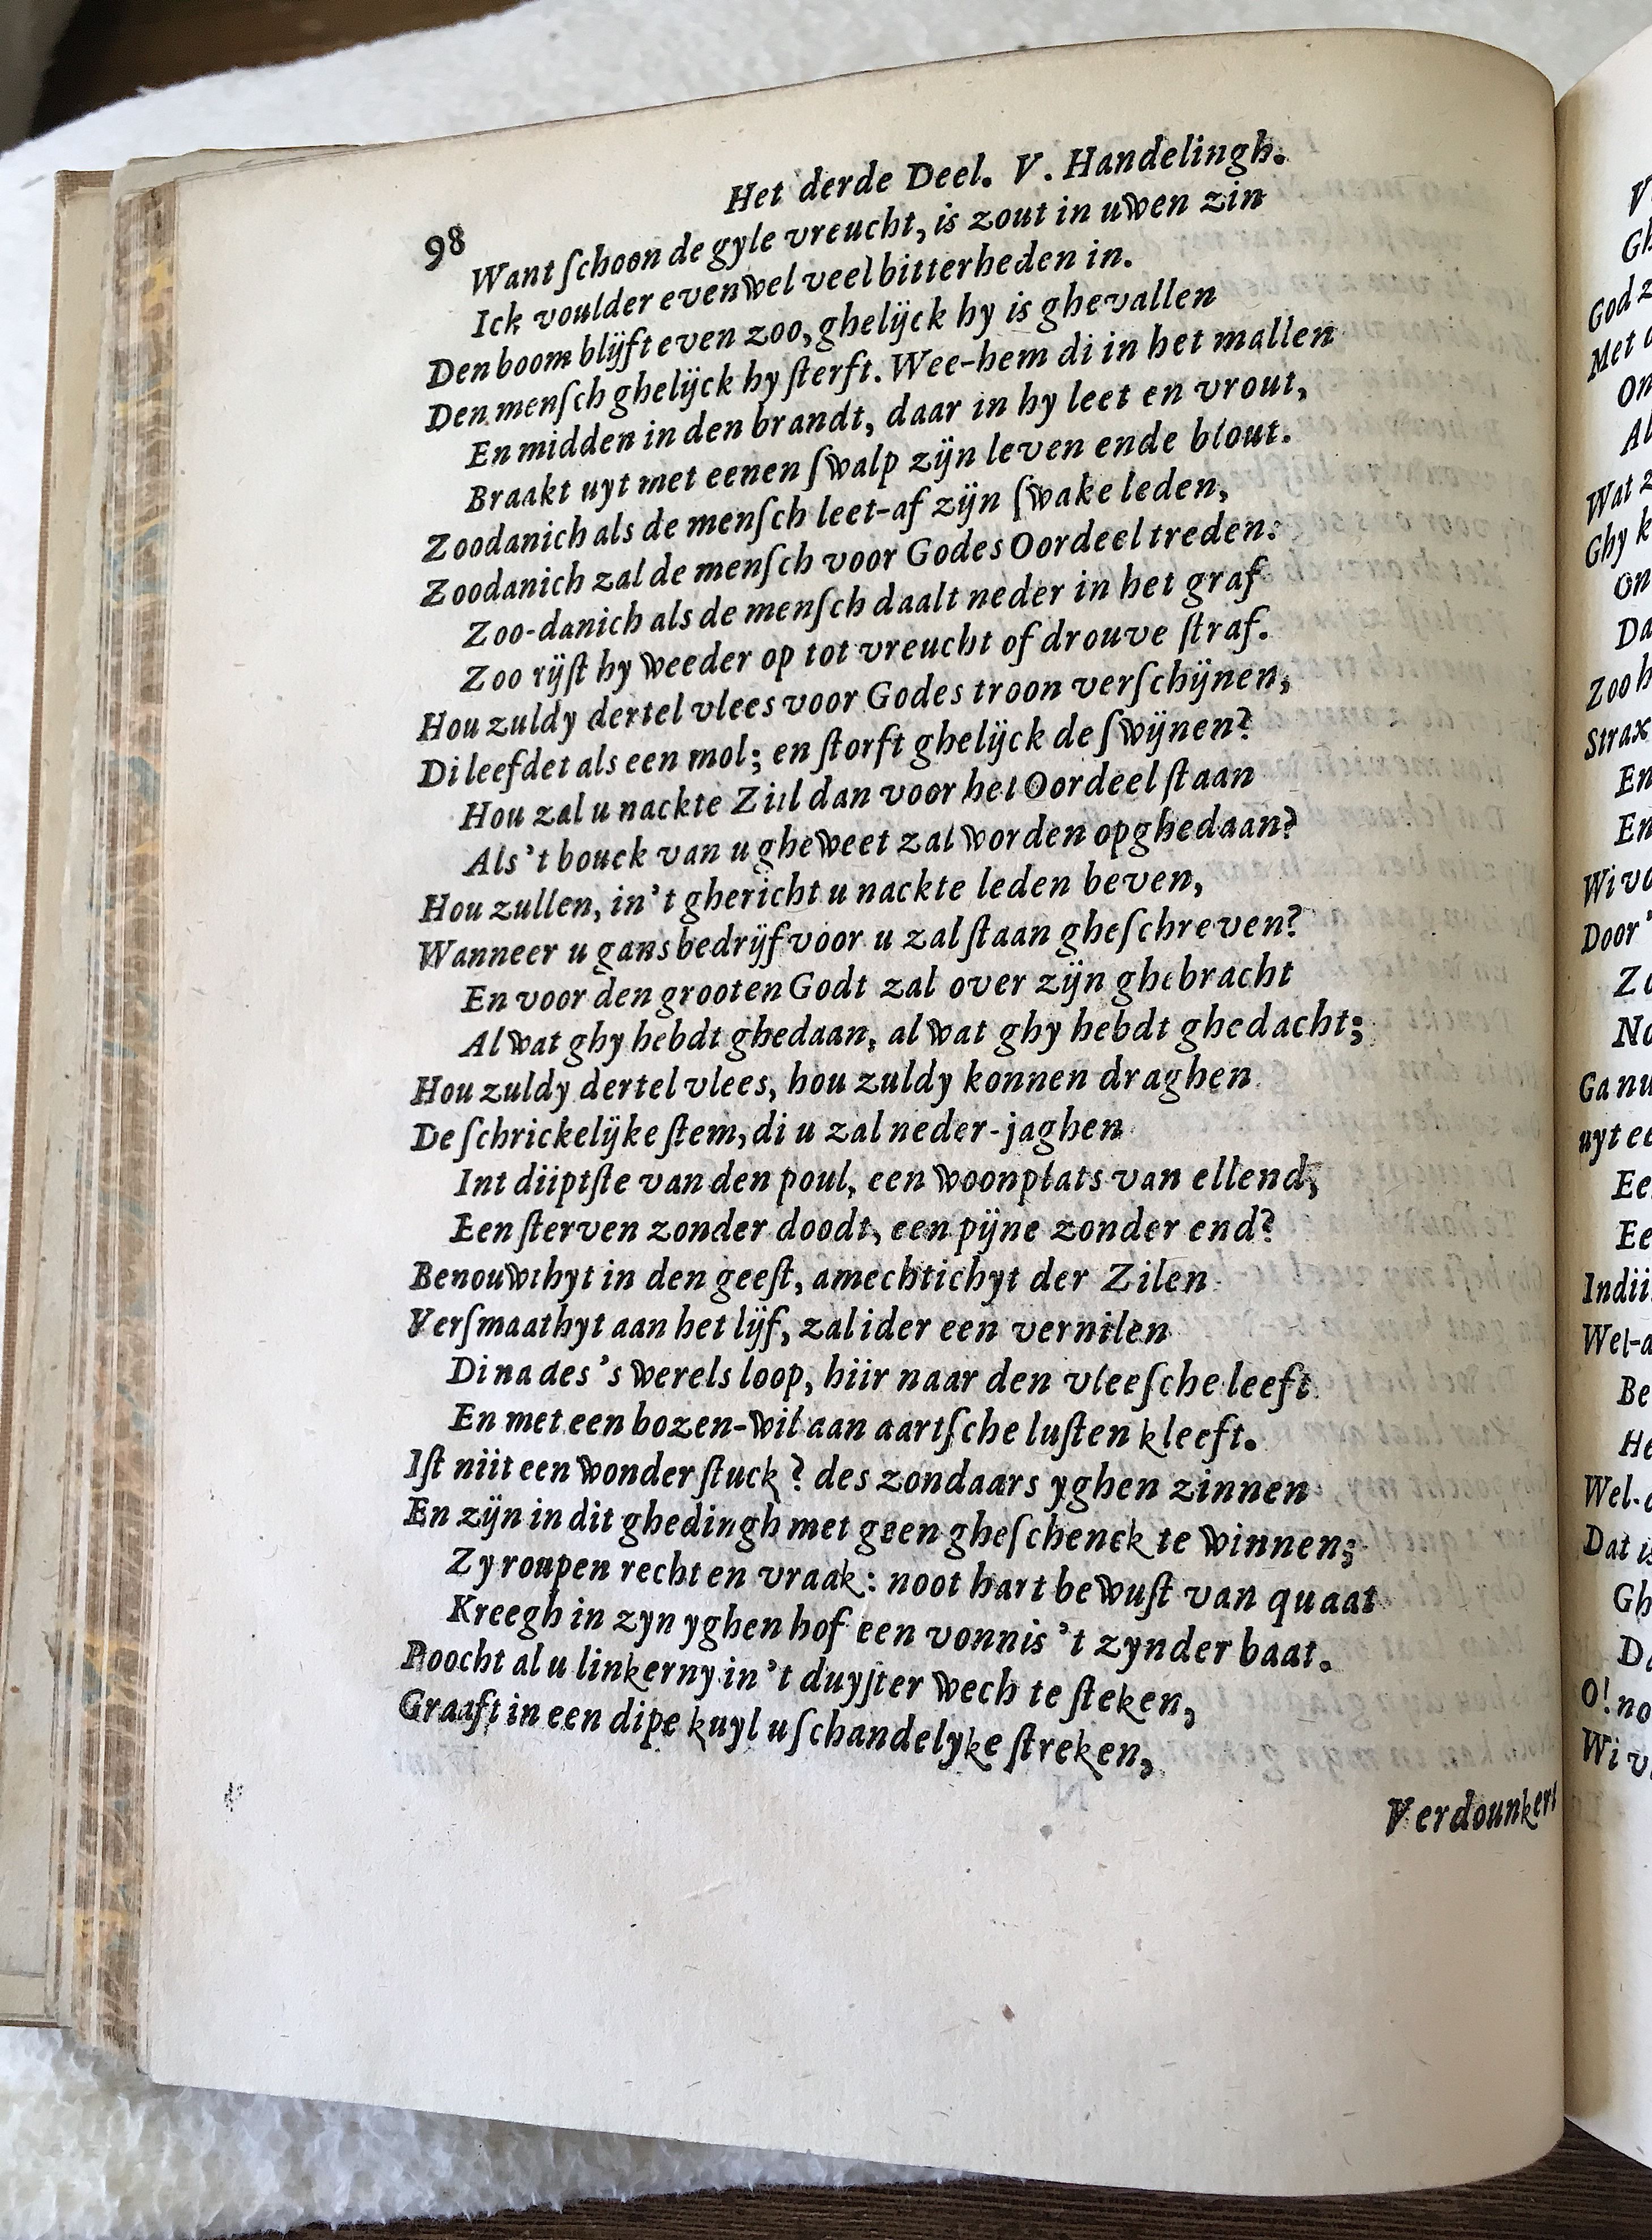 Het derde Deel. V. Handelingh.
98
Want ſchoon de gyle vreucht, is zout in uwen zin
Ick voulder evenwel veel bitterheden in.
Den boom blijft even zoo, ghelijck hy is ghevallen
Den menſch ghelijck hy ſterft. Wee-hem di in het mallen
En midden in den brandt, daar in hy leet en vrout,
Braakt uyt met eenen ſwalp zijn leven ende blout.
Zoodanich als de menſch leet-af zijn ſwake leden,
Zoodanich zal de menſch voor Godes Oordeel treden:
Zoo-danich als de menſch daalt neder in het graf
Zoo rijſt hy weeder op tot vreucht of drouve ſtraf.
Hou zuldy dertel vlees voor Godes troon verſchijnen,
Di leefdet als een mol; en ſtorft ghelijck de ſwijnen?
Hou zal u nackte Ziil dan voor het Oordeel ſtaan
Als 't bouck van u gheweet zal worden opghedaan?
Hou zullen, in't ghericht u nackte leden beven,
Wanneer u gans bedrijf voor u zal ſtaan gheſchreven?
En voor den grooten Godt zal over zijn ghebracht
Al wat ghy hebdt ghedaan, al wat ghy hebdt ghedacht;
Hou zuldy dertel vlees, hou zuldy konnen draghen
De ſchrickelijke ſtem, di u zal neder-jaghen
Int diiptſte van den poul, een woonplats van ellend,
Een ſterven zonder doodt, een pijne zonder end?
Benouwthyt in den geeſt, amechtichyt der Zilen
Verſmaathyt aan het lijf, zal ider een vernilen
Di na des 's werels loop, hiir naar den vleeſche leeft
En met een bozen-wil aan aartſche luſten kleeft.
Iſt niit een wonder ſtuck? des zondaars yghen zinnen
En zijn in dit ghedingh met geen gheſchenck te winnen;
Zy roupen recht en vraak: noot hart bewuſt van quaat
Kreegh in zyn yghen hof een vonnis 't zynder baat.
Poocht al u linkerny in 't duyſter wech te ſteken,
Graaft in een dipe kuyl u ſchandelyke ſtreken,
Verdounkert